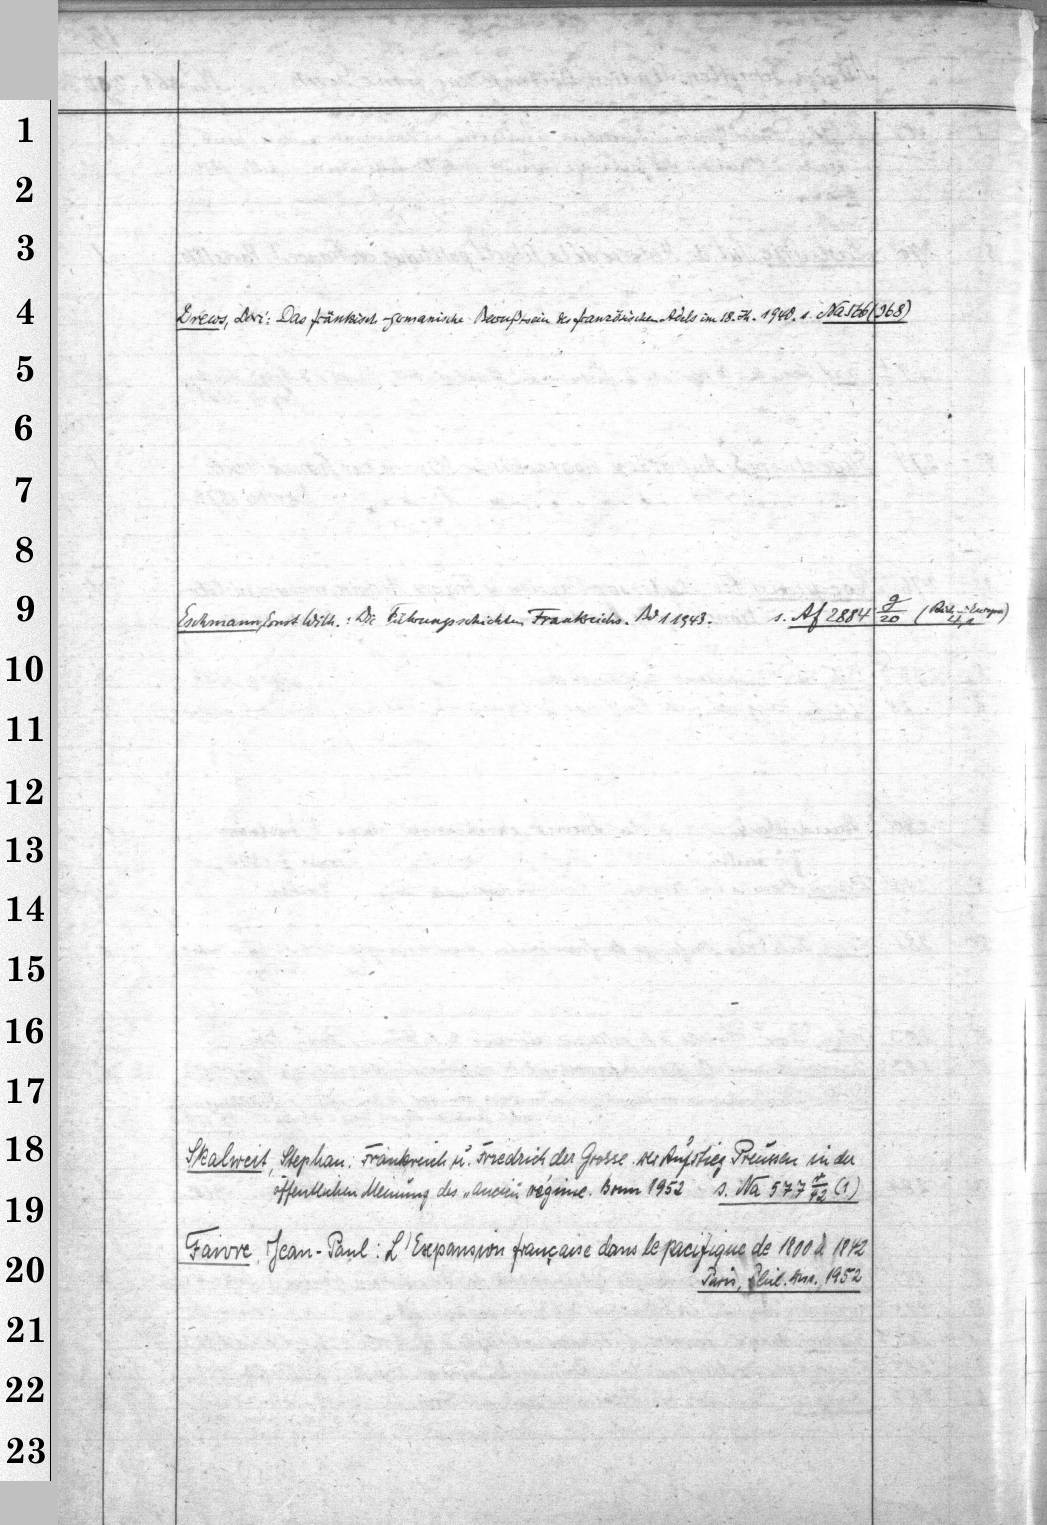 1
2
3
4
Drews, Dori: Das fränkisch-germanische Bewußtsein des französischen Adels im 18. Jh. 1940. s. Na 566 (368)
5
6
7
8
9
Eschmann, Ernst Wilh.: Die Führungsschichten Frankreichs. Bd 1 1943. s. Af 2884 g/20
10
11
12
13
14
15
16
17
18
Skalweit, Stephan: Frankreich u. Friedrich der Grosse. Der Aufstieg Preussen in der
öffentlichen Meinung des „ancien régime. Bonn 1952 s. Na 577 (1)
19
Faivre, Jean-Paul: L'Expansion française dans le pacifique de 1800 à 1842
20
Paris, Phil. Diss., 1952
21
22
23